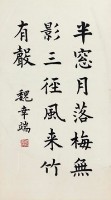 半窗月落梅無
影三徑風來竹
有聲
魏章端